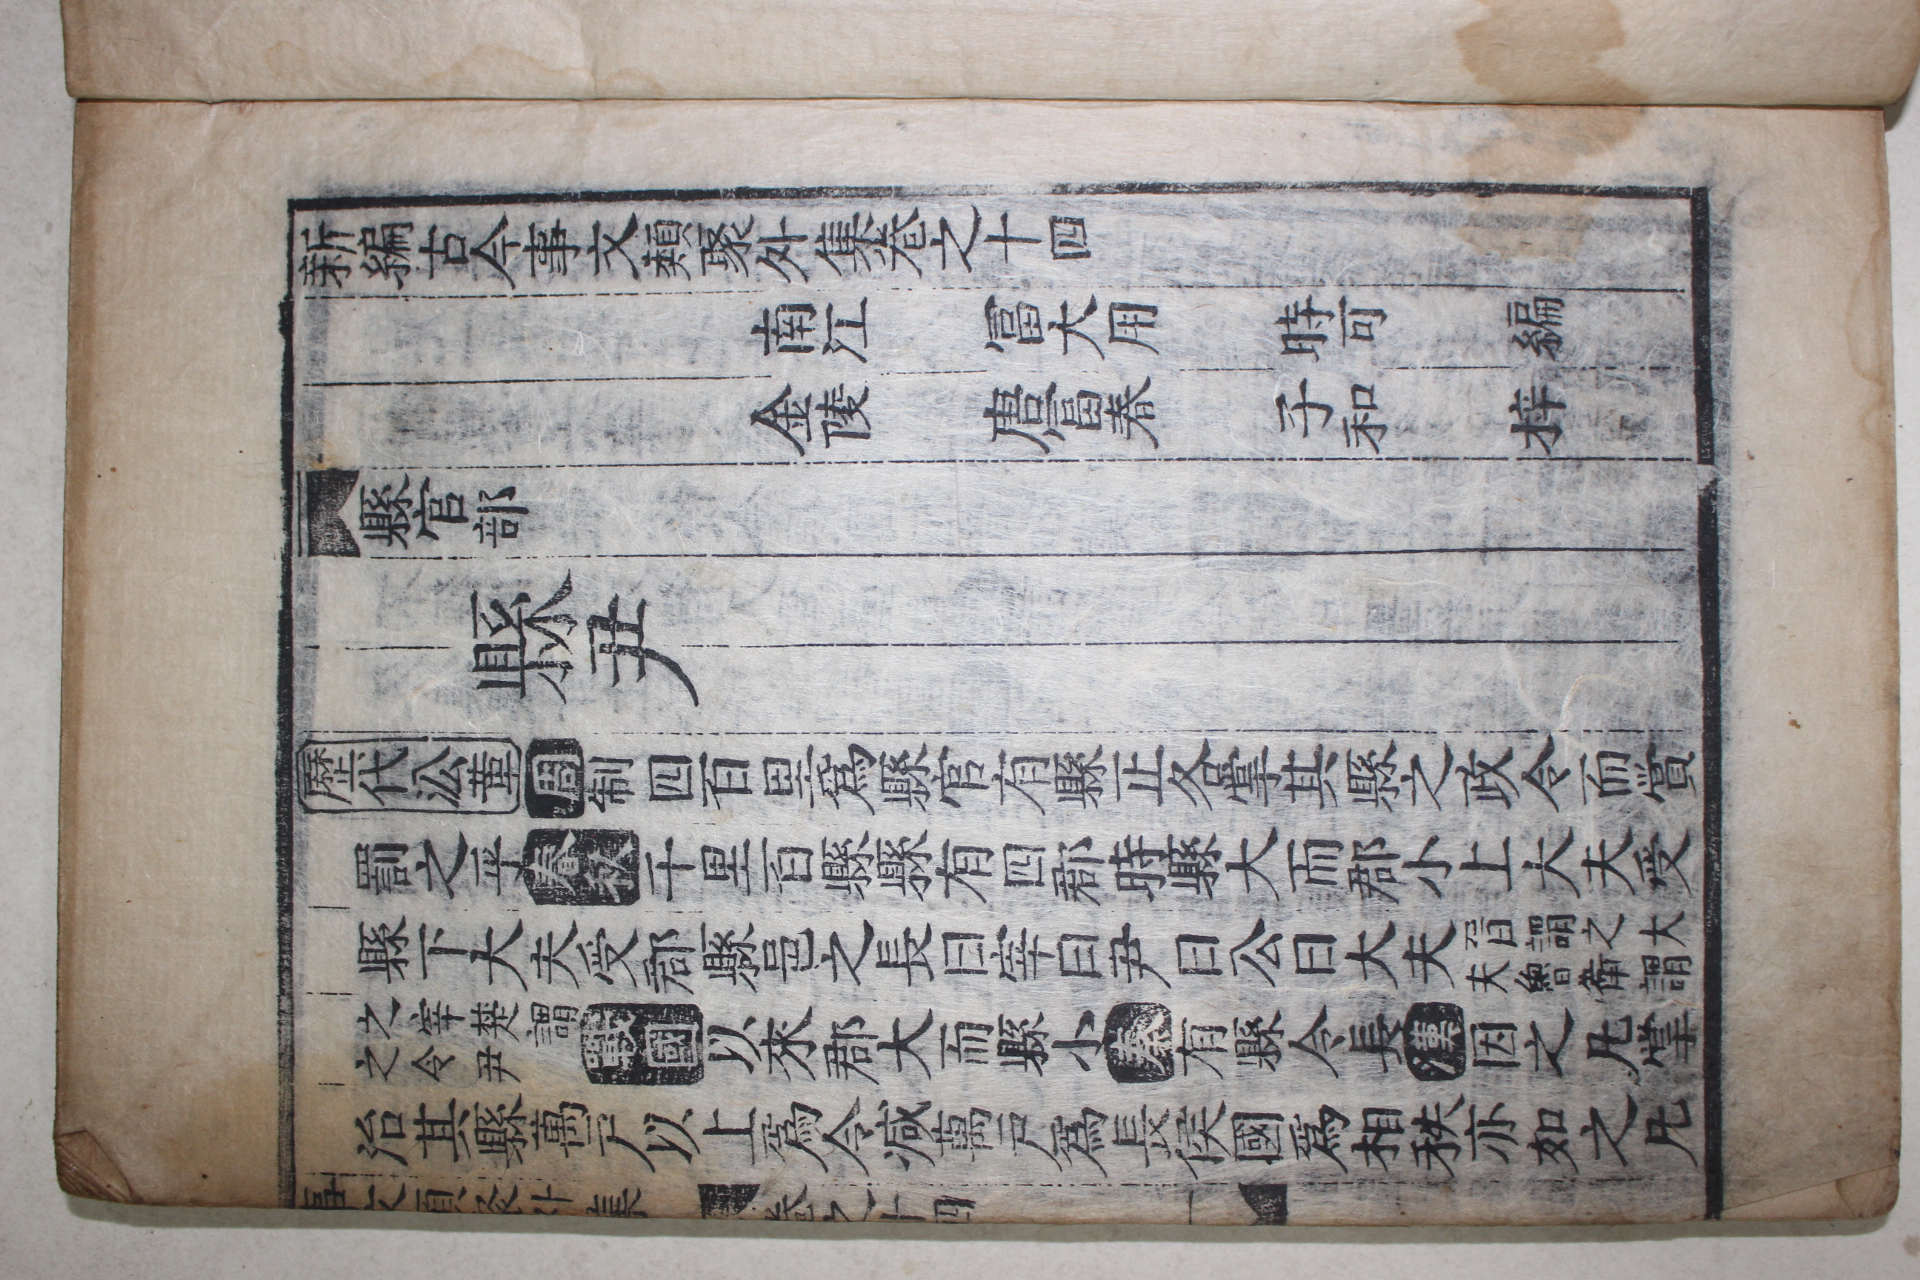 新編古今事文類聚外集卷之十四
南江 冨大用 時可 編
金陵 唐冨春 子和 梓
縣官部
縣尹
歷代㳂革周制四百里爲縣官有縣正各掌其縣之政令而賞
罰之乎春秋千里百縣縣有四郡時縣大而郡小上大夫受
縣下大夫受郡縣邑之長曰宰曰尹曰公曰大夫晉謂之大夫魯衛謂
之宰楚謂之令尹戰國以來郡大而縣小秦有縣令長漢因之凡掌
治其縣萬戶以上爲令减萬戶爲長侯國爲相秩亦如之凡
事文類聚外集 卷之十四 一